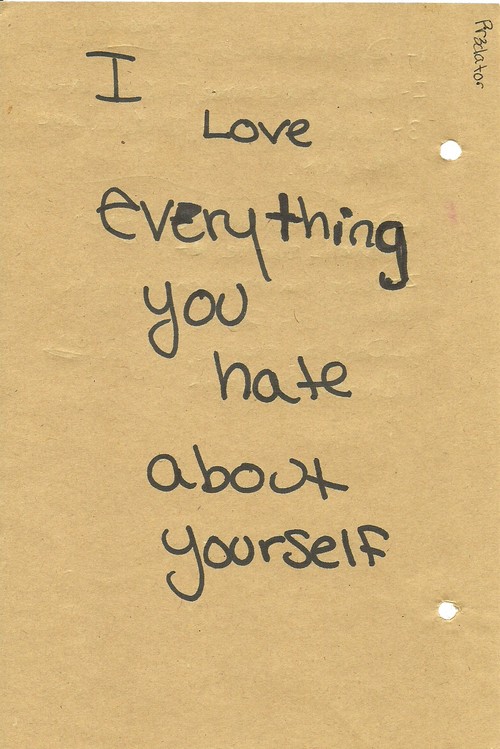 I
Love
everything
you
hate
about
yourself
Przdator